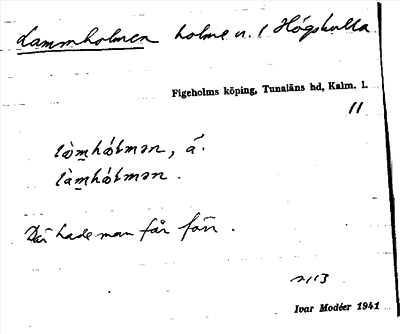 Lammholmen holme n. i Högskulla
Figeholms köping, Tunaläns hd, Kalm. l.
11
lòm̲hólmən, á.
làm̲hólmən.
Där hade man får förr.
Ivar Modéer 1941